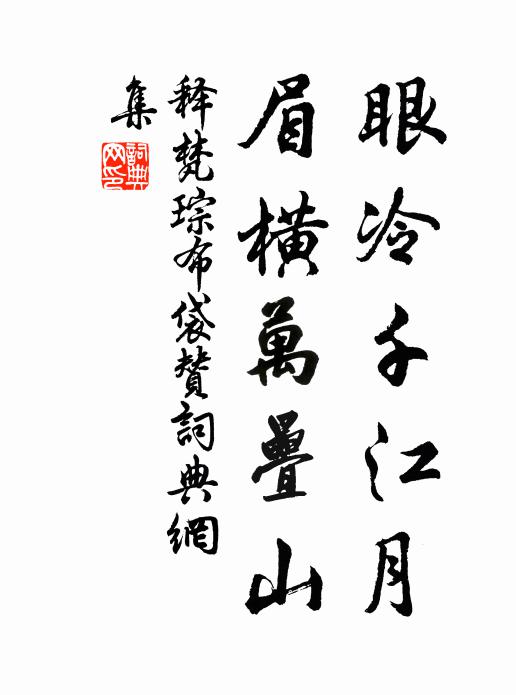 眼冷千江月
眉橫萬疊山
释梵琮布袋贊詞典網
集
詞典网印